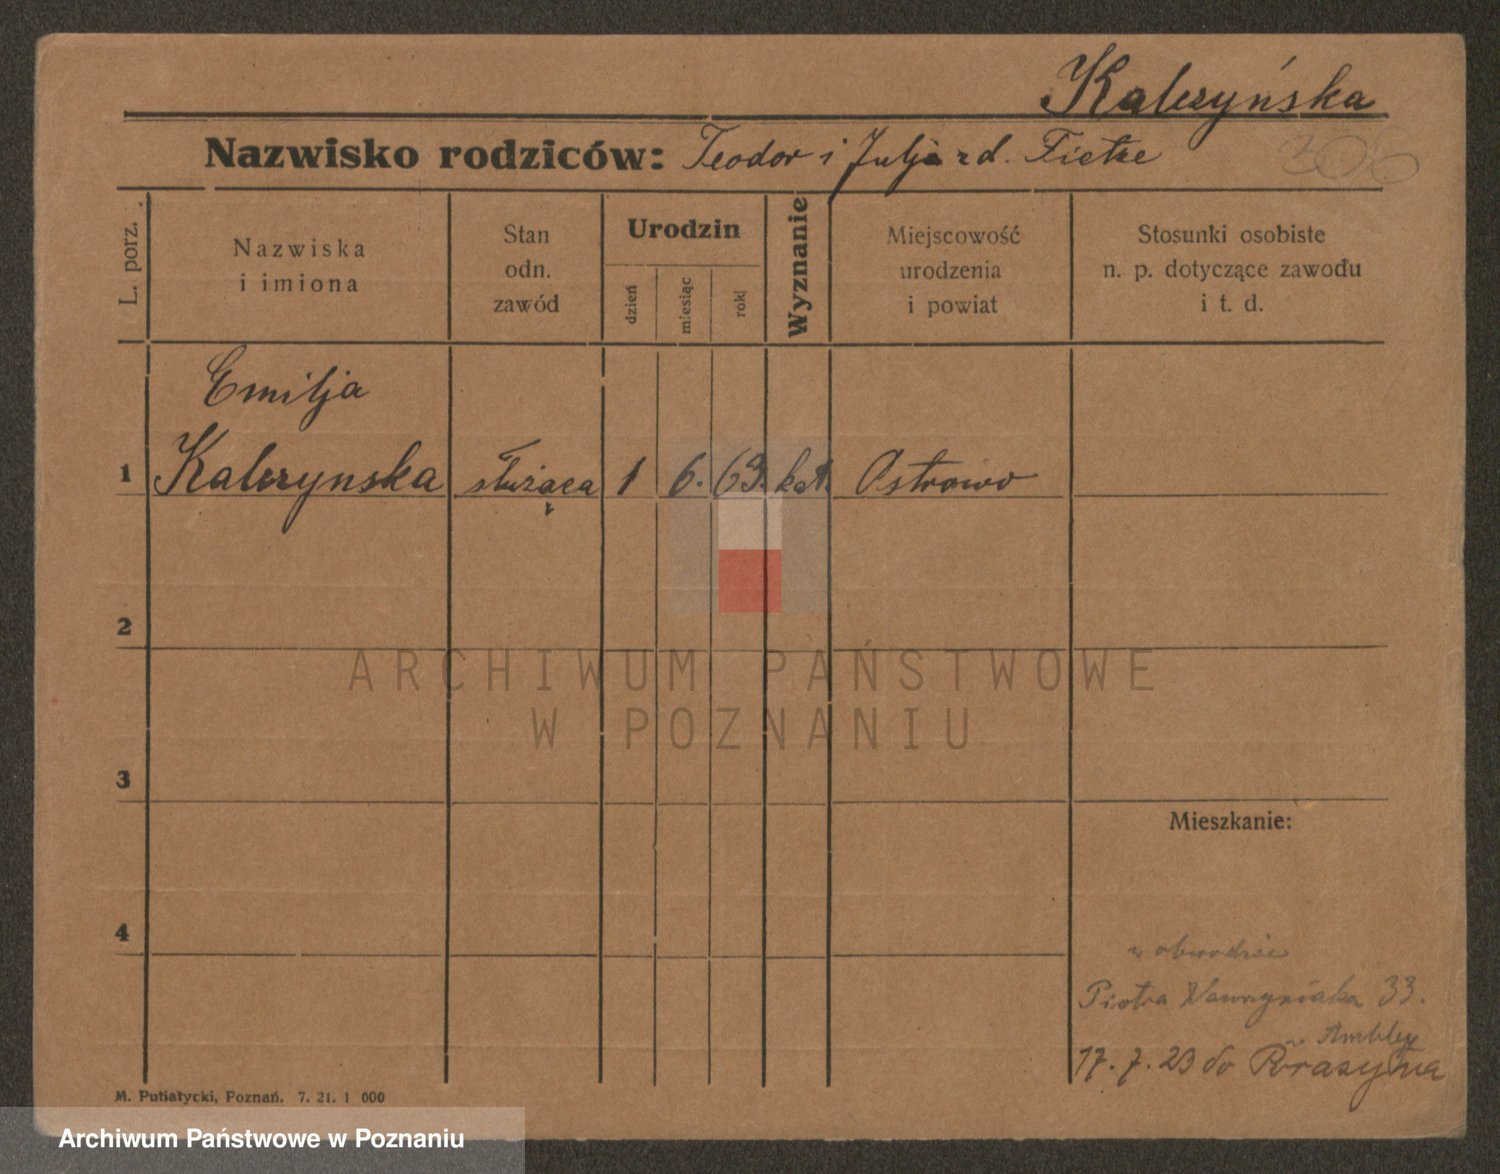 Kalczyńska
Nazwisko rodziców: Teodor i Julja z d. Fietze
300
L. porz.
Nazwiska
i imiona
Stan
odn.
zawód
Urodzin
dzień
miesiąc
rok
Wyznanie
Miejscowość
urodzenia
i powiat
Stosunki osobiste
n. p. dotyczące zawodu
i t. d.
Emilja
1 Kalczynska służąca 1 6. 63. kat. Ostrowo
2
ARCHIWUM PAŃSTWOWE
W POZNANIU
3
Mieszkanie:
4
w obwodzie
Piotra Wawrzyniaka 33.
17. 7. 23 do
M. Putiatycki, Poznań. 7. 21. 1 000
Archiwum Państwowe w Poznaniu